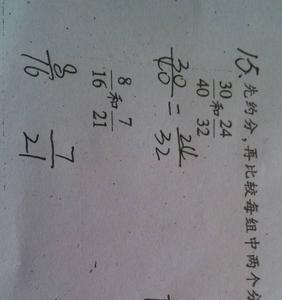 15. 先约分，再比较每组中两个分
30/40 和 24/32
30/40 = 24/32
8/16 和 7/21
8/16 7/21